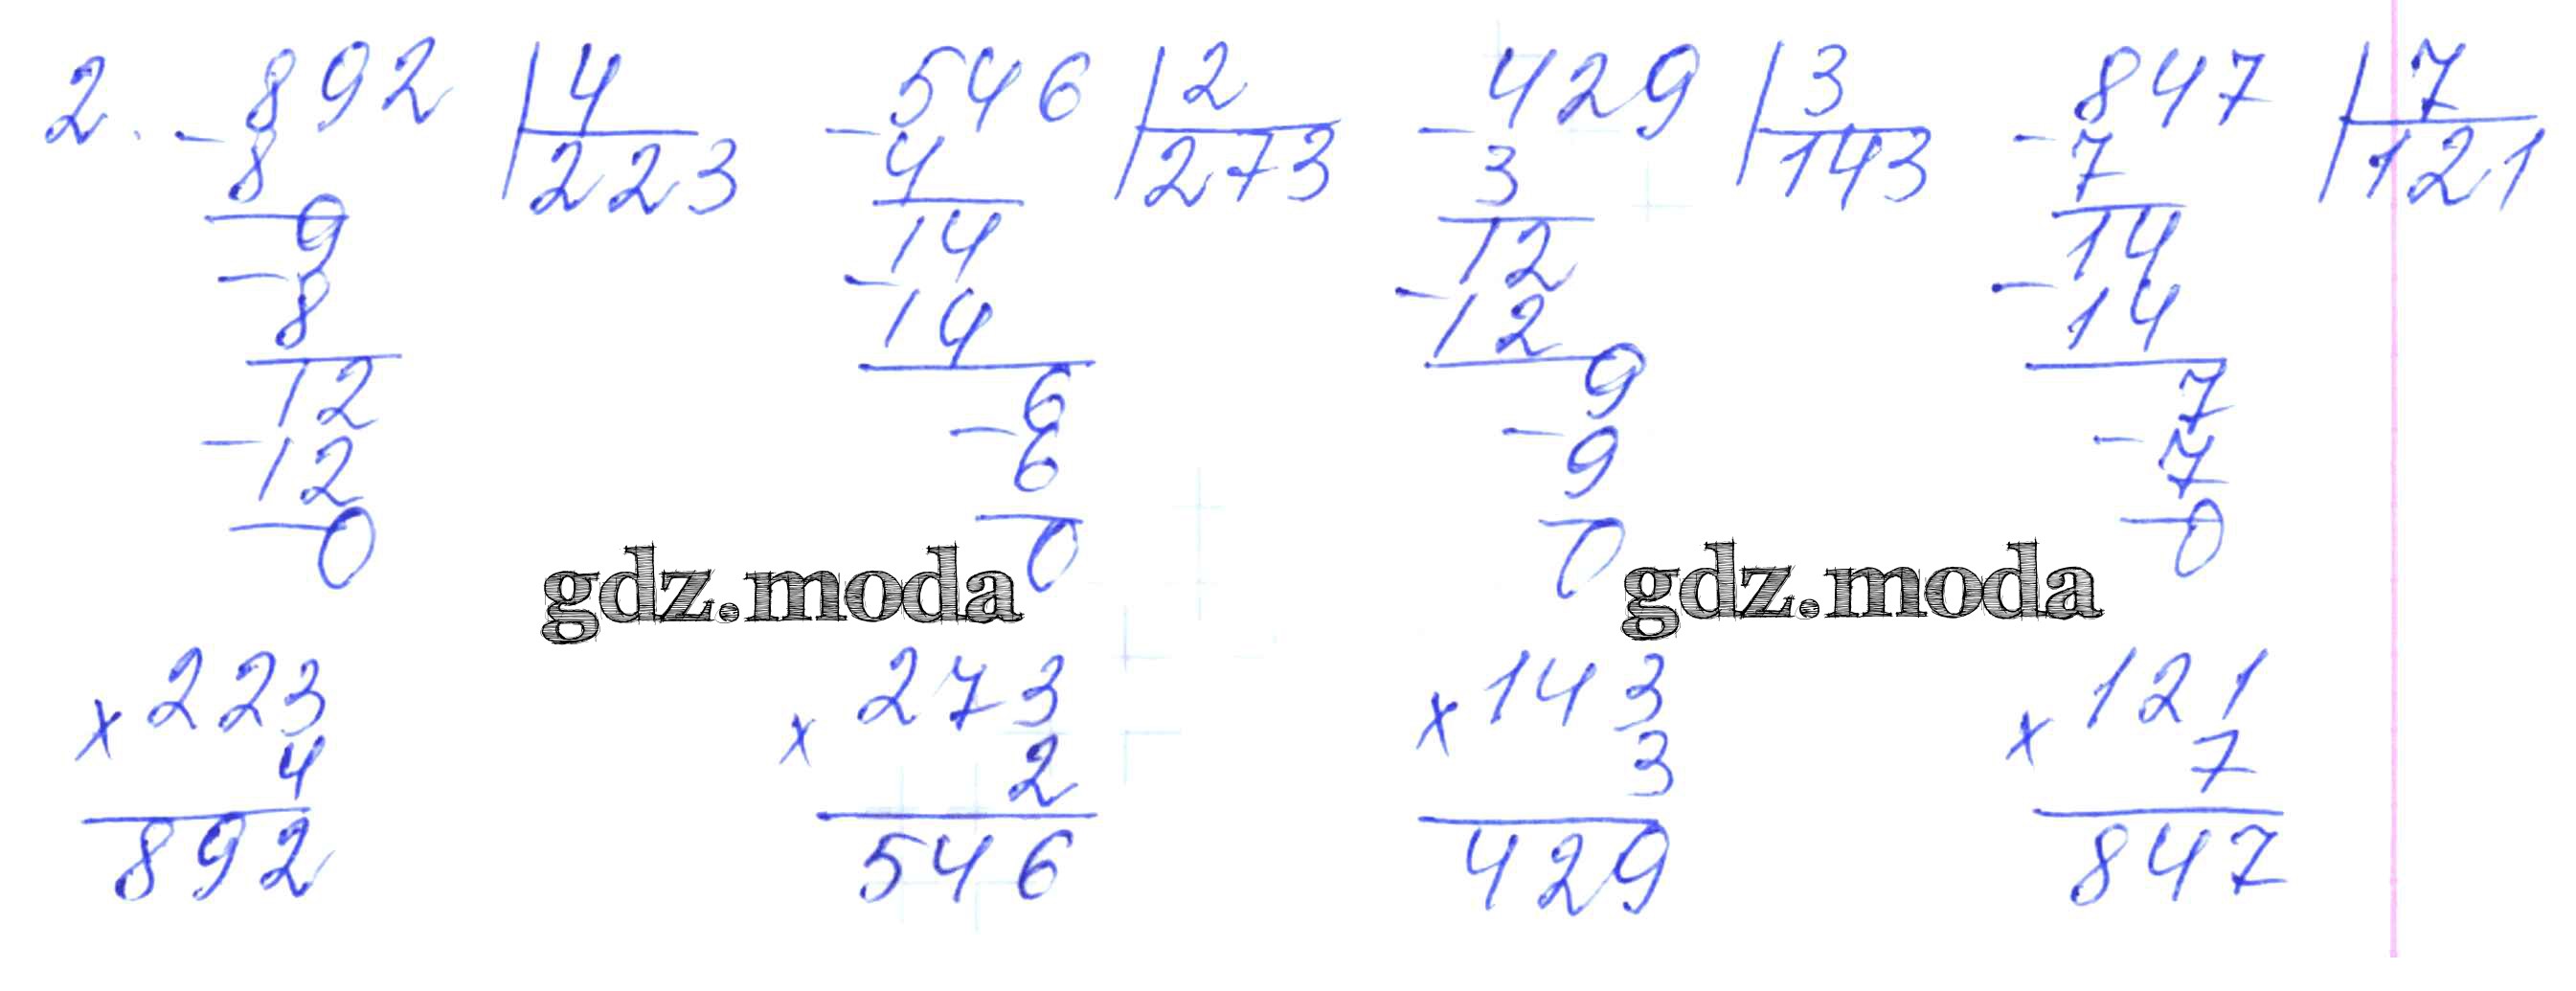 2. -892 |4 -546 |2 -429 |3 -847 |7
8 223 4 273 3 143 7 121
9 14 12 14
-8 -14 -12 -14
12 6 9 7
-12 -6 -9 -7
0 0 0 0
gdz.moda gdz.moda
x223 x273 x143 x121
4 2 3 7
892 546 429 847